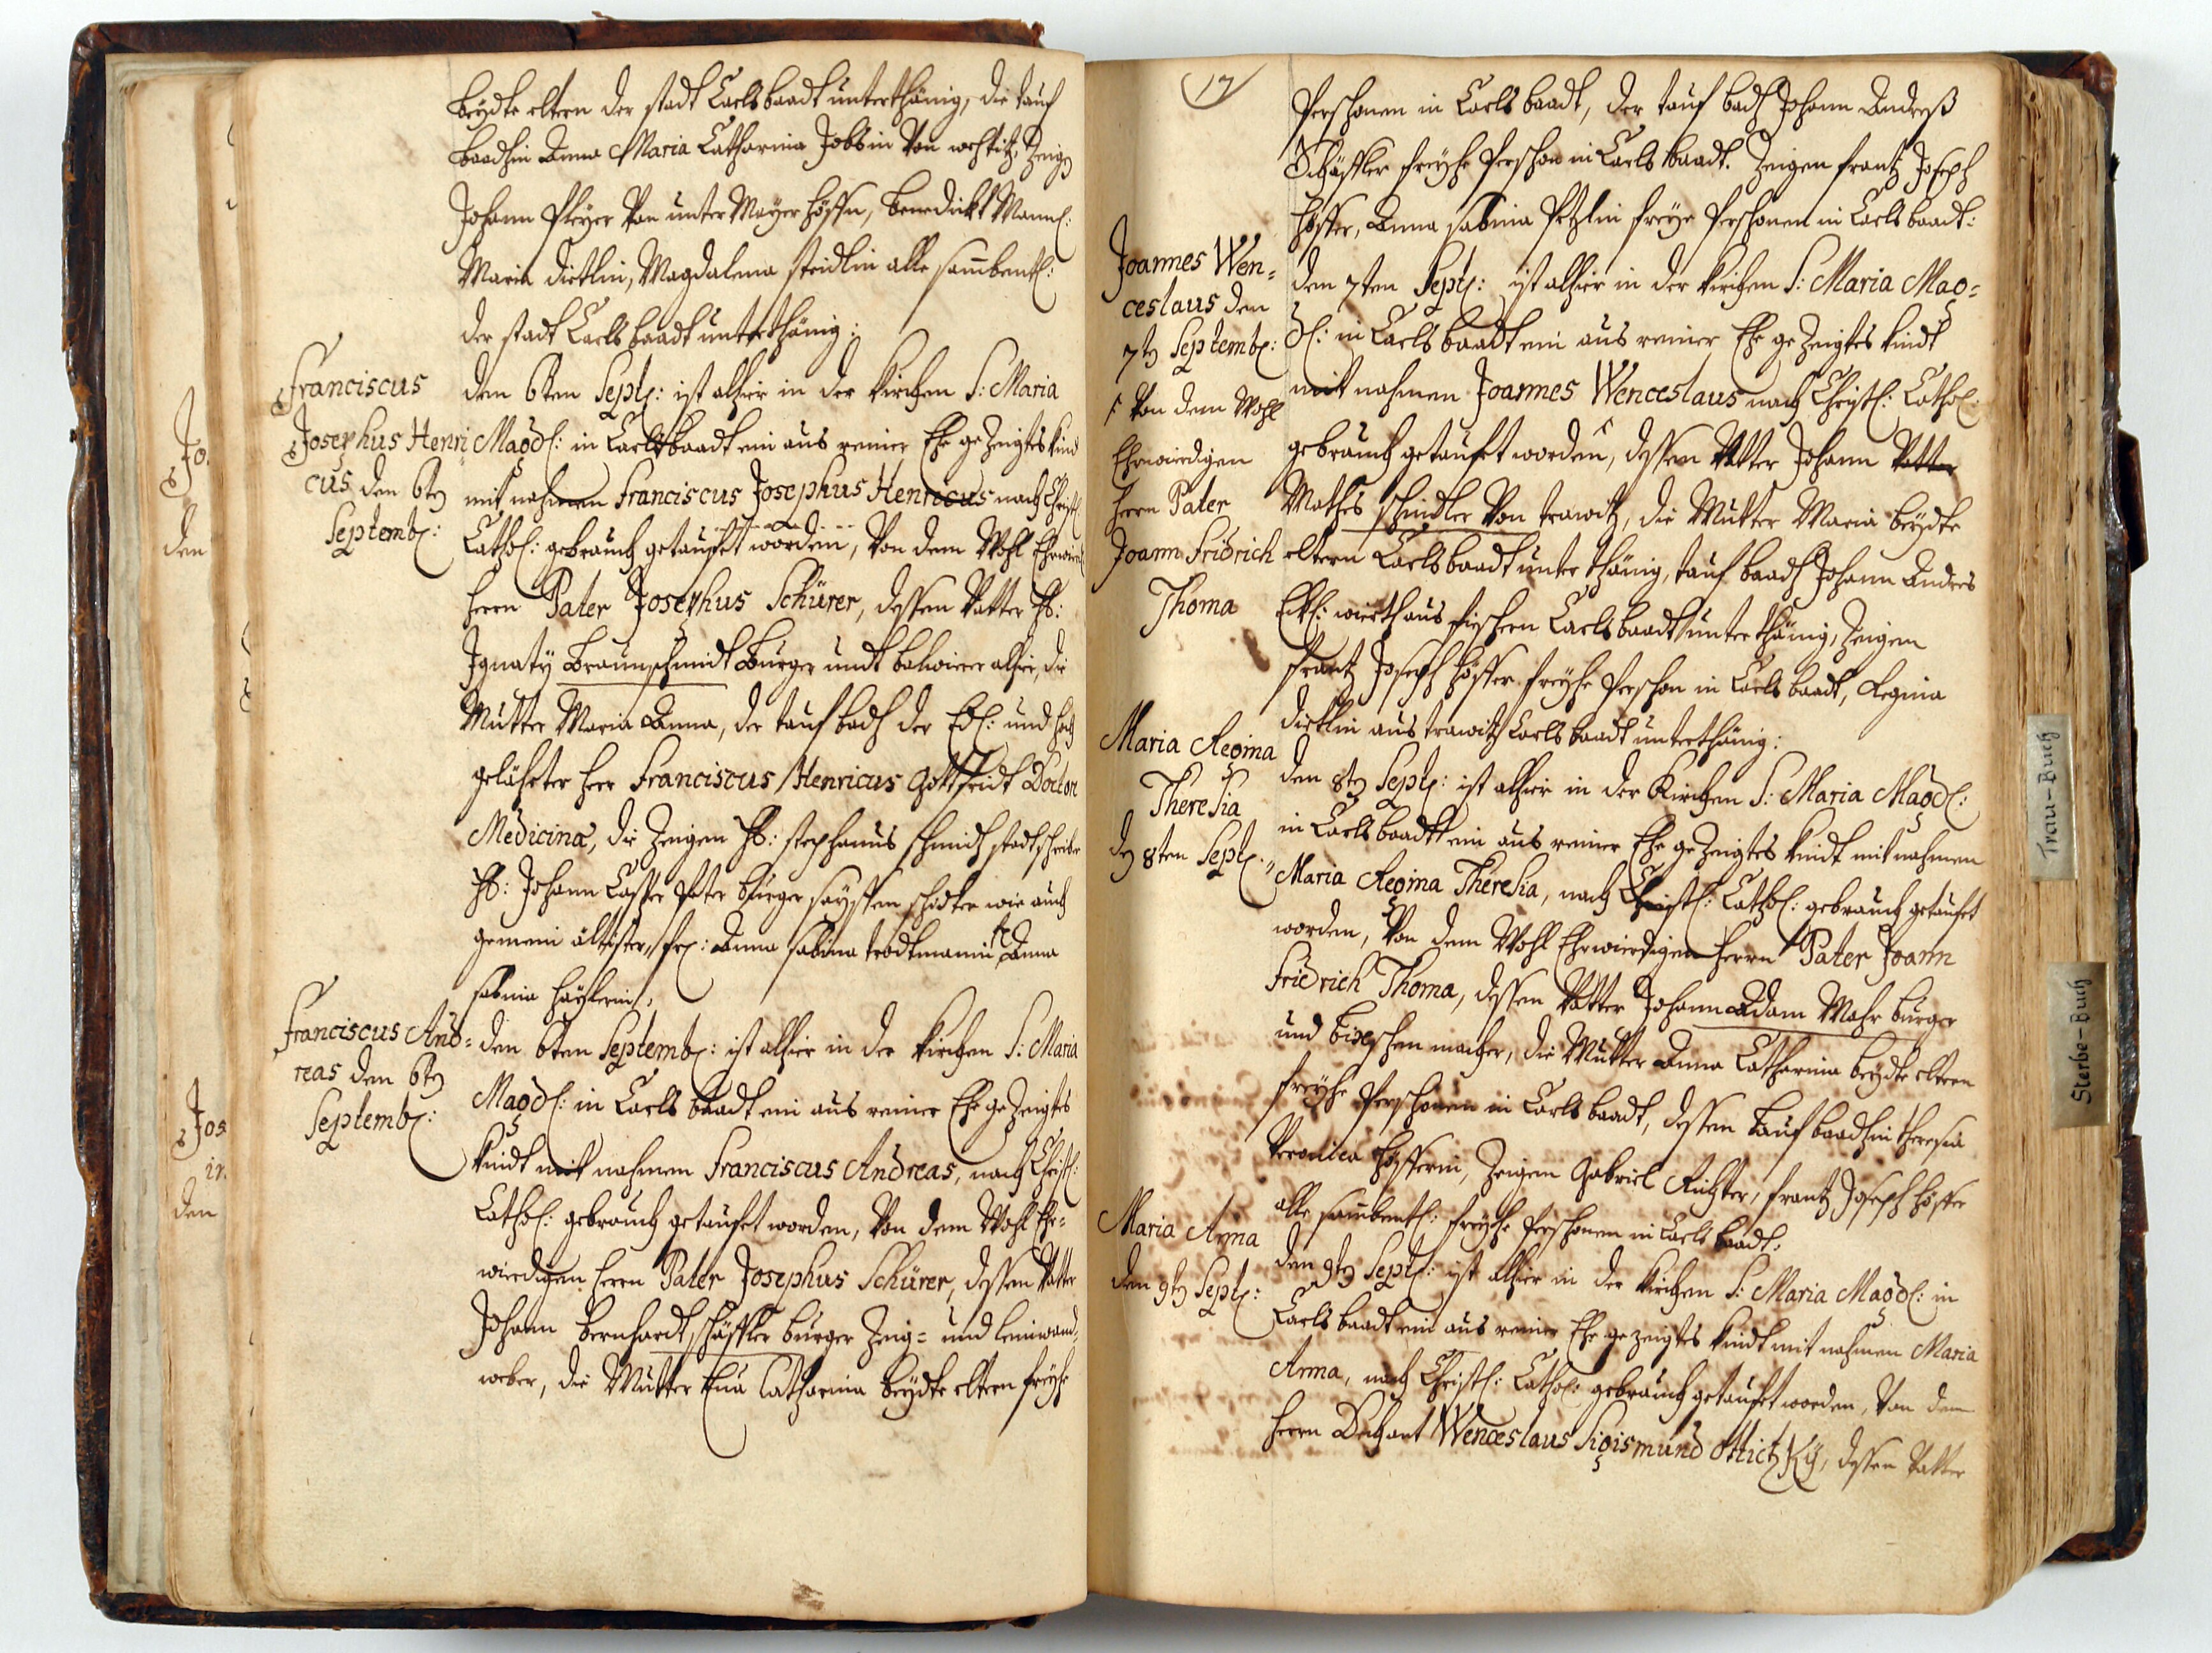 beÿdte eltern der stadt Carlsbaadt unterthänig, die tauf
baadhin Anna Maria Catharina Jobsin Von Zeigen
Johann Pleÿer Von unter Maÿerhöffen, benedickt Mannl:
Maria dietlin, Magdalena Seidlin alle sambentl:
der stadt Carlsbaadt unterthänig:
Franciscus
Josephus Henri
cus den 6ten
Septemb:
den 6ten Sept: ist alhier in der kirchen S: Maria
Magdl: in Carlsbaadt ein aus reiner Ehe gezeigtes kind
mit nahmen Franciscus Josephus Henricus nach Christl:
Cathol: gebrauch getauft worden, Von dem Wohl Ehrwierd
herrn Pater Josephus Schürer, dessen Vatter H:
Ignatÿ Braunschmidt Burger undt balwierer alhier, die
Mutter Maria Anna, der taufbadh der Edl: und hoch
gelährter herr Franciscus Henricus Gottfridt Doctor
Medicinæ, die Zeigen H: stephanus schmidh stadtschreiber
H: Johann Casper Peter burger wie auch
gemein ältister, fr: Anna Sabina trodtmannin Anna
sabina
Franciscus And=
reas den 6ten
Septemb:
den 6ten Septemb: ist alhier in der kirchen S: Maria
Magdl: in Carlsbaadt ein aus reiner Ehe gezeigtes
kindt mit nahmen Franciscus Andreas, nach Christl:
Cathol: gebrauch getauft worden, Von dem Wohl Ehr=
wierdigen herrn Pater Josephus Schürer, dessen Vatter
Johann bernhardt schäffler burger Zeig= und leinwand,
weber, die Mutter Eva Catharina beÿdte eltern freÿhe
17
Perschonen in Carlsbaadt, der tauf badh Johann Andreß
Schäffler freÿhe Perschon in Carlsbaadt. Zeigen frantz Joseph
Höffer, Anna Sabina Petzlin freÿe Perschonen in Carlsbaadt:
Joannes Wen=
ceslaus den
7ten Septemb:
Von dem Wohl
Ehrwierdigen
herrn Pater
Joann Fridrich
Thoma
den 7ten Sept: ist alhier in der kirchen S: Maria Mag=
dl: in Carlsbaadt ein aus reiner Ehe gezeigtes kindt
mit nahmen Joannes Wenceslaus nach Christl: Cathol:
gebrauch getauft worden, dessen Vatter Johann Vatter
Mathes schindler Von trawitz, die Mutter Maria beÿdte
eltern Carlsbaadt unterthänig, tauf baadh Johann Andres
Eckl: wierth aus fischern Carlsbaadt unterthänig, Zeigen
frantz Joseph Höffer freÿhe Perschon in Carlsbaadt, Regina
dietlin aus trawitz Carlsbaadt unterthänig:
Maria Regina
Theresia
den 8ten Sept:
den 8ten Sept: ist alhier in der Kirchen S: Maria Magdl:
in Carlsbaadt ein aus reiner Ehe gezeigtes kindt mit nahmen
Maria Regina Theresia, nach Christl: Cathol: gebrauch getauft
worden, Von dem Wohl Ehrwierdigen herrn Pater Joann
Fridrich Thoma, dessen Vatter Johann Adam Mahr burger
und bixschen macher, die Mutter Anna Catharina beÿdte eltern
freÿhe Perschonen in Carlsbaadt, dessen Taufbaadhin theresia
Veronica Höfferin, Zeigen Gabriel Richter, frantz Joseph Höffer
alle sambentl: freÿhe Perschonen in Carlsbaadt.
Maria Anna
den 9ten Sept:
den 9ten Sept: ist alhier in der kirchen S: Maria Magdl: in
Carlsbaadt ein aus reiner Ehe gezeigtes kindt mit nahmen Maria
Anna, nach Christl: Cathol: gebrauch getauft worden, Von dem
herrn Dechant Wenceslaus Sigismund Ottitzkÿ, dessen Vatter
Trau-Buch
Sterbe-Buch
Jo.
den
Jos
in
den